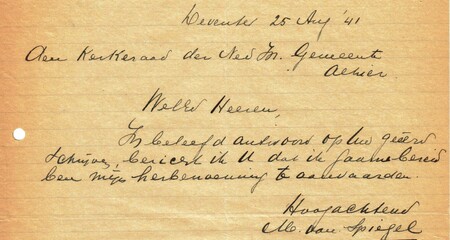 Deventer 25 Aug '41
Aan Kerkeraad der Ned Isr. Gemeente
Alhier
WelEd Heeren,
In beleefd antwoord op Uw geëerd
schrijven, bericht ik U dat ik gaarne bereid
ben mijn herbenoeming te aanvaarden.
Hoogachtend
M. van Spiegel